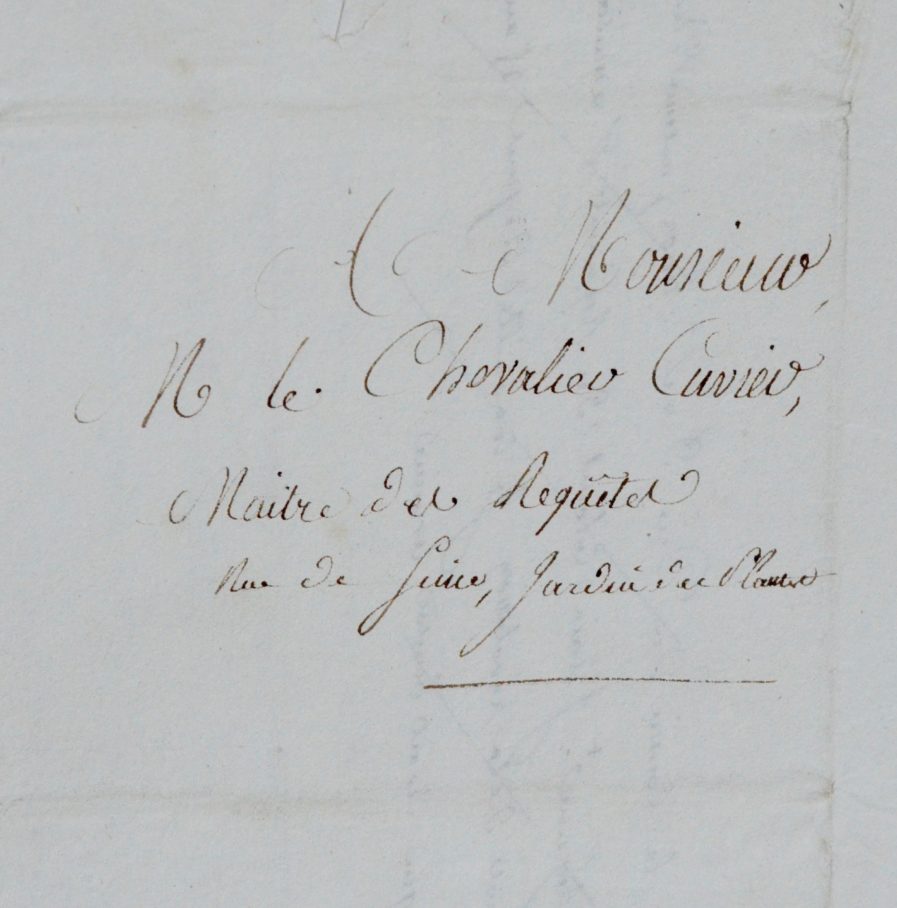 A Monsieur,
M le Chevalier Cuvier,
Maitre des Requêtes
Rue de Seine, Jardin des Plantes